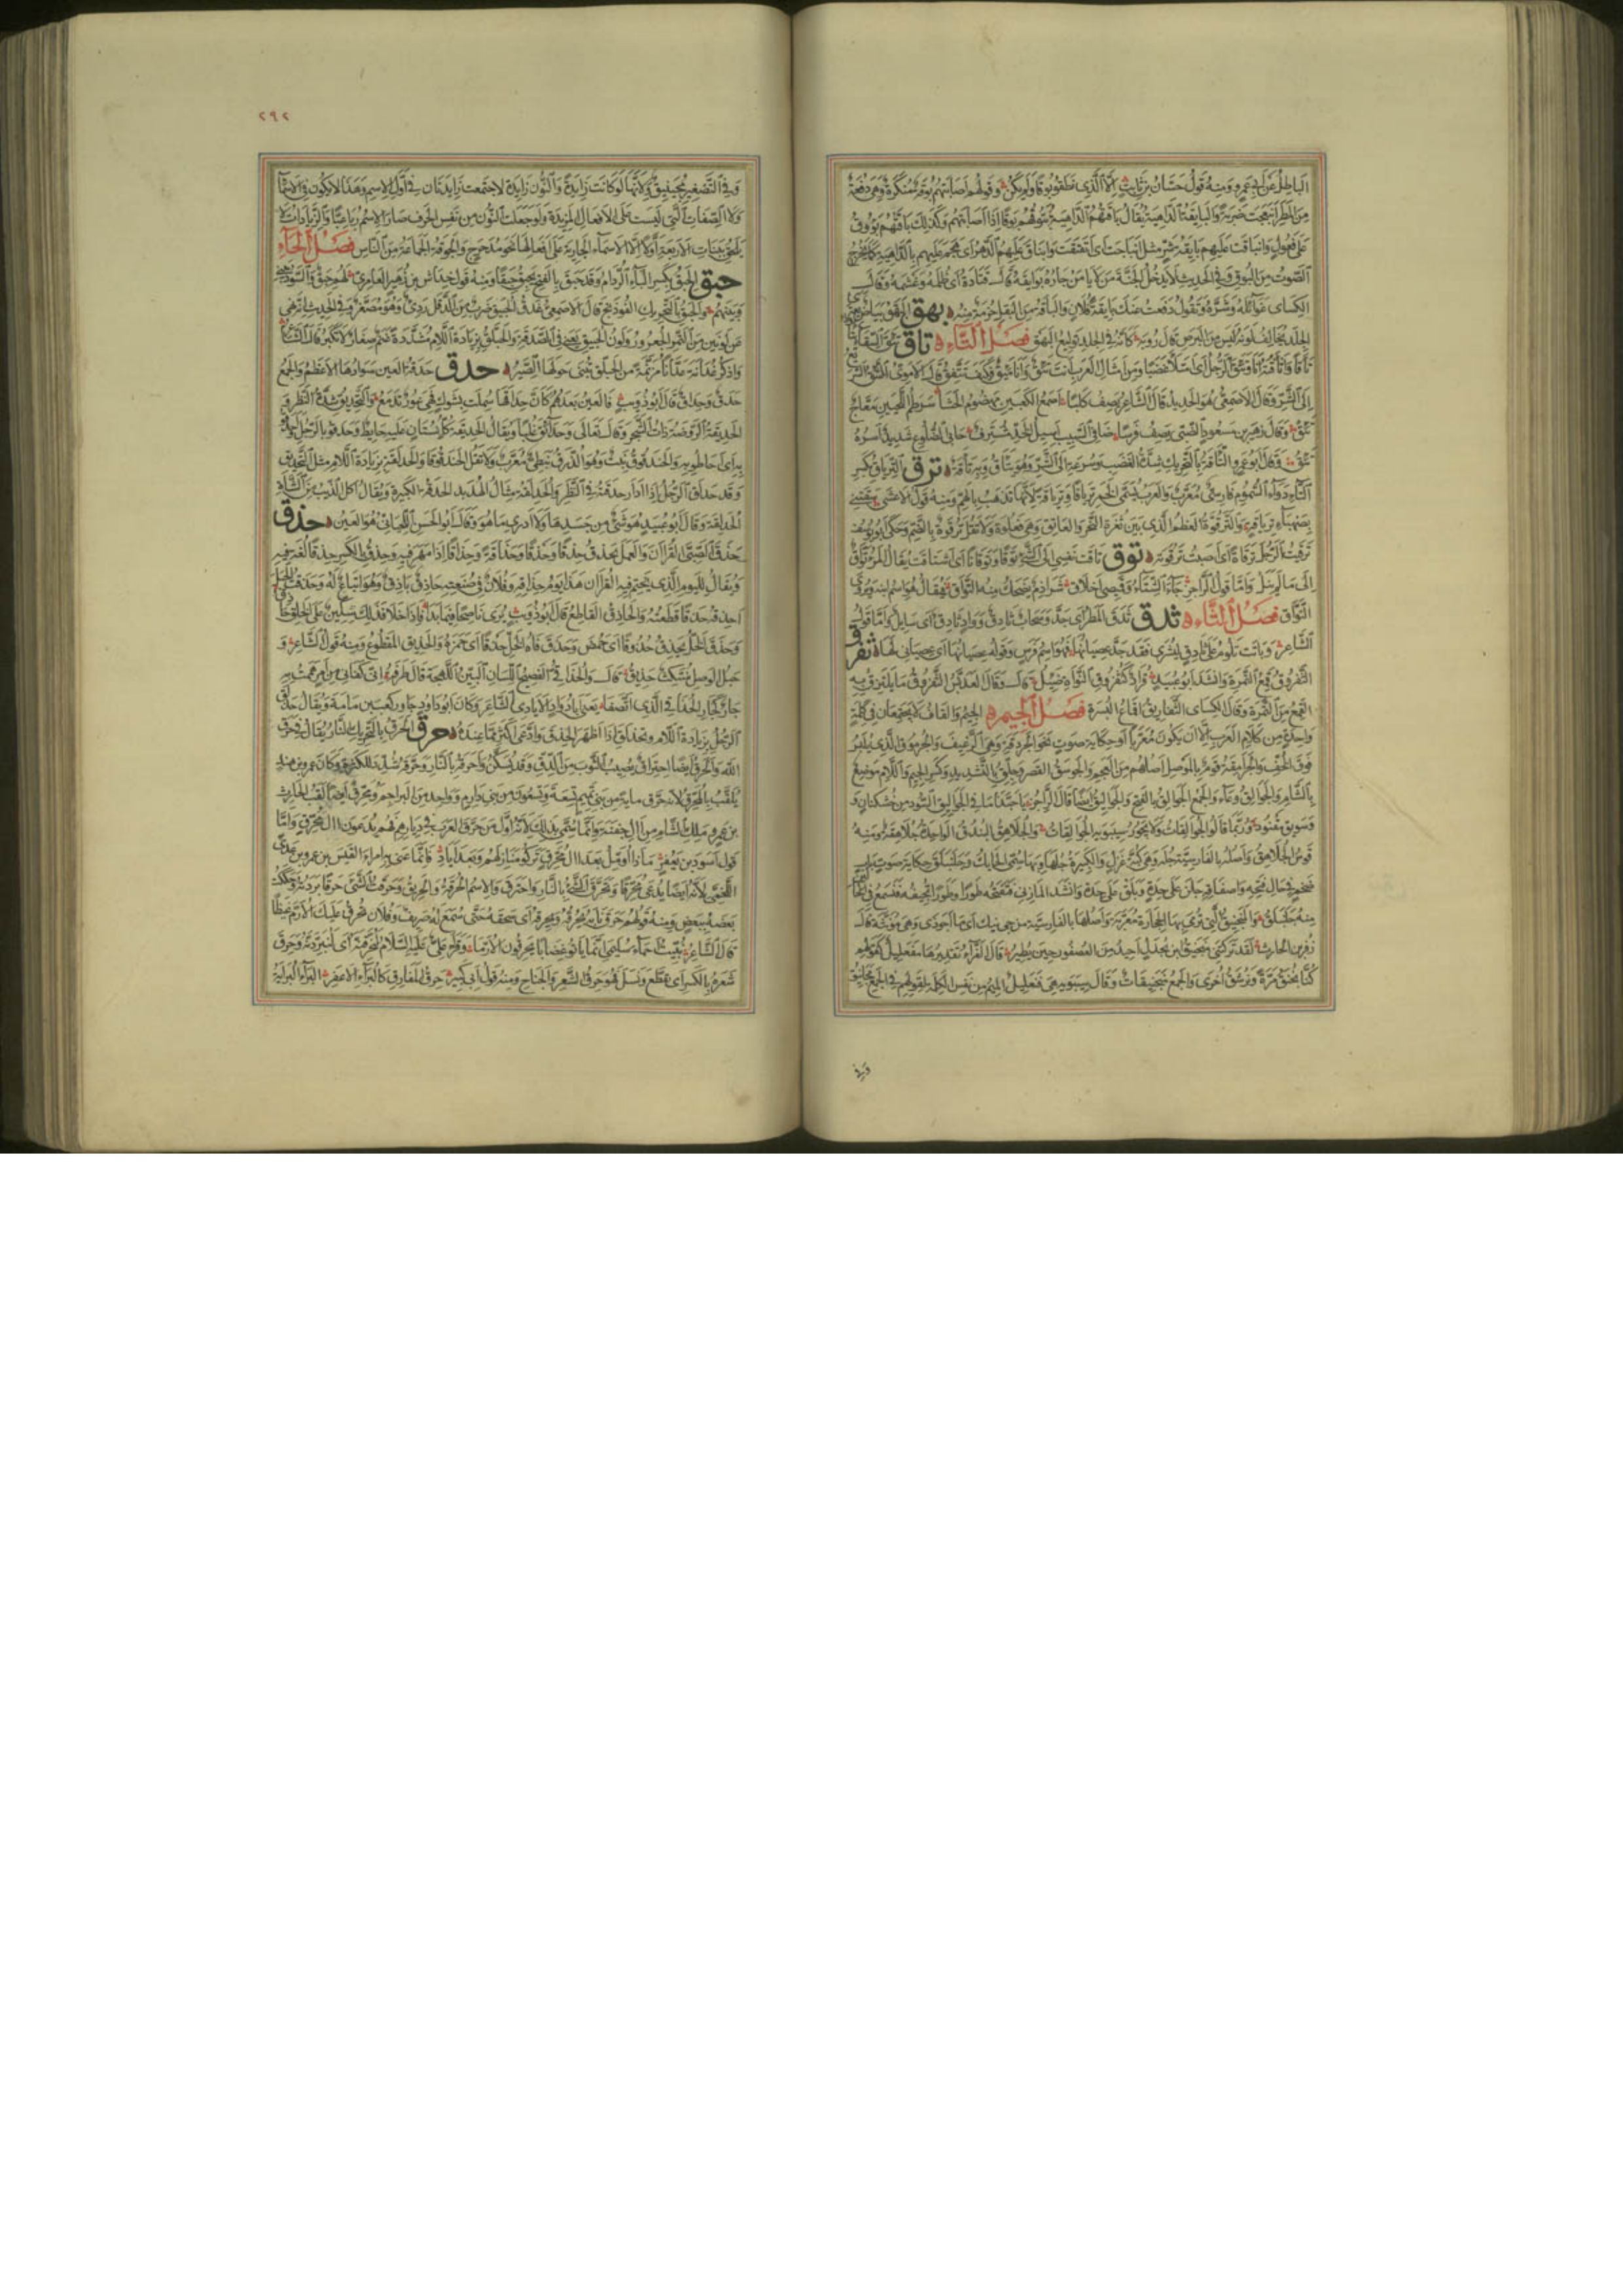 الباطل عن ابي عمرو ومنه قول حسان بن ثابت الا الذي نطقوا بوقا ولم يكن وقولهم اصابتهم بوقة منكرة وهي دفعة
من المطر انبعجت ضربة والبايقة الداهية يقال باقتهم الداهية تبوقهم بوقا اذا اصابتهم وكذلك باقتهم بؤوق
على فعول وانباقت عليهم بايقة شر مثل انباجت اى انفتقت وانباق عليهم الدهر اى هجم عليهم بالداهية كما يخرج
الصوت من البوق وفي الحديث لا يدخل الجنة من لا يامن جاره بوايقه قال قتادة اى ظلمه وغشمه وقال
الكسائى غوائله وشره وتقول دفعت عنك بايقة فلان والباقة من البقل حزمة منه بهق البهق بياض يعترى
الجلد يخالف لونه ليس من البرص قال رؤبة كانه في الجلد توليع البهق فصل التاء تأق تئق السقاء
تأقا وأتأقته انا وتئق الرجل اى امتلأ غضبا ومن امثال العرب انت تئق وانا مئق فكيف نتفق قال الاموى التئق السريع
الى الشر وقال الاصمعى هو الحديد قال الشاعر يصف كلبا اصمع الكعبين مهضوم الحشا سرطم اللحيين معاج
تئق وقال زهير بن مسعود الضبى يصف فرسا ضافى السبيب اسيل الخد مشترف حابى الضلوع شديد اسره
تئق وقال ابو عمرو التأقة بالتحريك شدة الغضب وسرعة الى الشر وهو يتأق وبه تأقة ترق الترياق بكسر
التاء دواء السموم فارسى معرب والعرب تسمى الخمر ترياقا وترياقة لانها تذهب بالهم ومنه قول الاعشى سقتنى
بصهباء ترياقة والترقوة العظم الذى بين ثغرة النحر والعاتق وهى فعلوة ولا تقل ترقوة بالضم وحكى ابو يوسف
ترقيت الرجل ترقاة اى اصبت ترقوته توق تاقت نفسى الى الشئ توقا وتوقانا اى اشتاقت يقال المرء تواق
الى ما لم ينل واما قول الراجز جاء الشتاء وقميصى اخلاق شراذم يضحك منه التواق فيقال هو اسم ابنه ويروى
النواق فصل الثاء ثدق ثدق المطر اى جد وسحاب ثادق وواد ثادق اى سايل واما قول
الشاعر وباتت تلوم على ثادق ليشرى فقد جد عصيانها فهو اسم فرس وقوله عصيانها اى عصيانى لها ثفرق
الثفروق قمع التمرة وانشد ابو عبيد قراد كثفروق النواة ضئيل قال وقال العدبس الثفروق ما يلتزق به
القمع من التمرة وقال الكسائى الثفاريق اقماع البسرة فصل الجيم الجيم والقاف لا يجتمعان في كلمة
واحدة من كلام العرب الا ان يكون معربا او حكاية صوت نحو الجردقة وهى الرغيف والجرموق الذى يلبس
فوق الخف والجرامقة قوم بالموصل اصلهم من العجم والجوسق القصر وجلق بالتشديد وكسر الجيم واللام موضع
بالشام والجوالق وعاء والجمع الجوالق بالفتح والجواليق ايضا قال الراجز يا حبذا ما في الجواليق السود من خشكنان و
وسويق مقنود وربما قالوا الجوالقات ولا يجوز سيبويه الجوالقات والجلاهق البندق الواحدة جلاهقة ومنه
قوس الجلاهق واصله بالفارسية جله وهى كبة غزل والكثير جلها وبها سمى الحايك وجلنبلق حكاية صوت باب
ضخم في حال فتحه واصفاقه جلن على حدة وبلق على حدة وانشد المازنى فتفتحه طورا وطورا تجيفه فتسمع فى الحالين
منه جلنبلق والمنجنيق التى ترمى بها الحجارة معربة واصلها بالفارسية من جى نيك اى ما اجودنى وهى مؤنثة قال
زفر بن الحارث لقد تركتنى منجنيق ابن بحدل احيد من العصفور حين يطير قال الفراء تقديرها منفعليل لقولهم
كنا نجنق مرة ونرشق اخرى والجمع منجنيقات وقال سيبويه هى فنعليل الميم من نفس الكلمة لقولهم في الجمع مجانيق
وفى
٢٩٢
وفى التصغير مجينيق ولانها لو كانت زايدة والنون زايدة لاجتمعت زايدتان فى اول الاسم وهذا لا يكون في الاسماء
ولا الصفات التى ليست على الافعال المزيدة ولو جعلت النون من نفس الحرف صار الاسم رباعيا والزيادات لا
تلحق ببنات الاربعة اولا الا الاسماء الجارية على افعالها نحو مدحرج والجوقة الجماعة من الناس فصل الحاء
حبق الحبق بكسر الباء الردام وقد حبق بالفتح يحبق حبقا ومنه قول خداش بن زهير العامرى لهم حبق والسود بينى
وبينهم والحبق بالتحريك الفوذنج قال الاصمعى عذق الحبيق ضرب من الدقل ردى وهو مصغر وفى الحديث انه نهى
عن لونين من التمر الجعرور ولون الحبيق يعنى فى الصدقة والحبلق بزيادة اللام مشددة غنم صغار لا تكبر قال الشاعر
واذكر غدانة عدانا مزنمة من الحبلق تبنى حولها الصير حدق حدقة العين سوادها الاعظم والجمع
حدق وحداق قال ابو ذؤيب فالعين بعدهم كان حداقها سملت بشوك فهى عور تدمع والتحديق شدة النظر و
الحديقة الروضة ذات الشجر وقال تعالى وحدائق غلبا ويقال الحديقة كل بستان عليه حايط وحدقوا بالرجل
به اى احاطوا به والحندقوق نبت وهو الذرق نبطى معرب ولا تقل الحندقوقا والحدلقة بزيادة اللام مثل التحديق
وقد حدلق الرجل اذا ادار حدقته فى النظر والحدلقة مثال الهدبد الحدقة الكبيرة ويقال اكل الذئب من الشاة
الحدلقة وقال ابو عبيد هو شئ من جسدها ولا ادرى ما هو وقال ابو الحسن اللحيانى هو العين حذق
حذق الصبى القران والعمل يحذق حذقا وحذقا وحذاقة وحذاقا اذا مهر فيه وحذق بالكسر حذقا لغة فيه
ويقال لليوم الذى يختم فيه القران هذا يوم حذاقه وفلان فى صنعته حاذق باذق وهو اتباع له وحذقت الحبل
احذقه حذقا قطعته والحاذق القاطع قال ابو ذؤيب يرى ناصحا فيما بدا فاذا خلا فذلك سكين على الحلق حاذق
وحذق الخل يحذق حذوقا اى حمض وحذق فاه الخل حذقا اى حمزه والحذيق المقطوع ومنه قول الشاعر و
حبل الوصل منتكث حذيق قال والحذاقى الفصيح اللسان البين اللهجة قال طرفة انى كفانى من امر هممت به
جار كجار الحذاقى الذى اتصفا يعنى ابا دواد الايادى الشاعر وكان ابو دواد جاور كعب بن مامة ويقال حذلق
الرجل بزيادة اللام وتحذلق اذا اظهر الحذق وادعى اكثر مما عنده حرق الحرق بالتحريك النار يقال في حرق
الله والحرق ايضا احتراق يصيب الثوب من الدق وقد يسكن واحرقه بالنار وحرقه شدد للكثرة وكان عمرو بن هند
يلقب بالمحرق لانه حرق ماية من بنى تميم تسعة وتسعون من بنى دارم وواحد من البراجم ومحرق ايضا لقب الحارث
بن عمرو ملك الشام من آل جفنة وانما سمى بذلك لانه اول من حرق العرب فى ديارهم فهم يدعون آل محرق واما
قول اسود بن يعفر ماذا اؤمل بعد آل محرق تركوا منازلهم وبعد اياد فانما عنى به امرء القيس بن عمرو بن عدى
اللخمى لانه ايضا يدعى محرقا وتحرق الشئ بالنار واحترق والاسم الحرقة والحريق وحرقت الشئ حرقا بردته وحككت
بعضه ببعض ومنه قولهم حرق نابه يحرقه ويحرقه اى سحقه حتى سمع له صريف وفلان يحرق عليك الارم غيظا
قال الشاعر نبئت احماء سليمى انما باتوا غضابا يحرقون الارما وقرأ على عليه السلام لنحرقنه اى لنبردنه وحرق
شعره بالكسر اى تقطع ونسل فهو حرق الشعر والجناح ومنه قول ابى كبير حرق المفارق كالبراء الاعفر البراء البراية